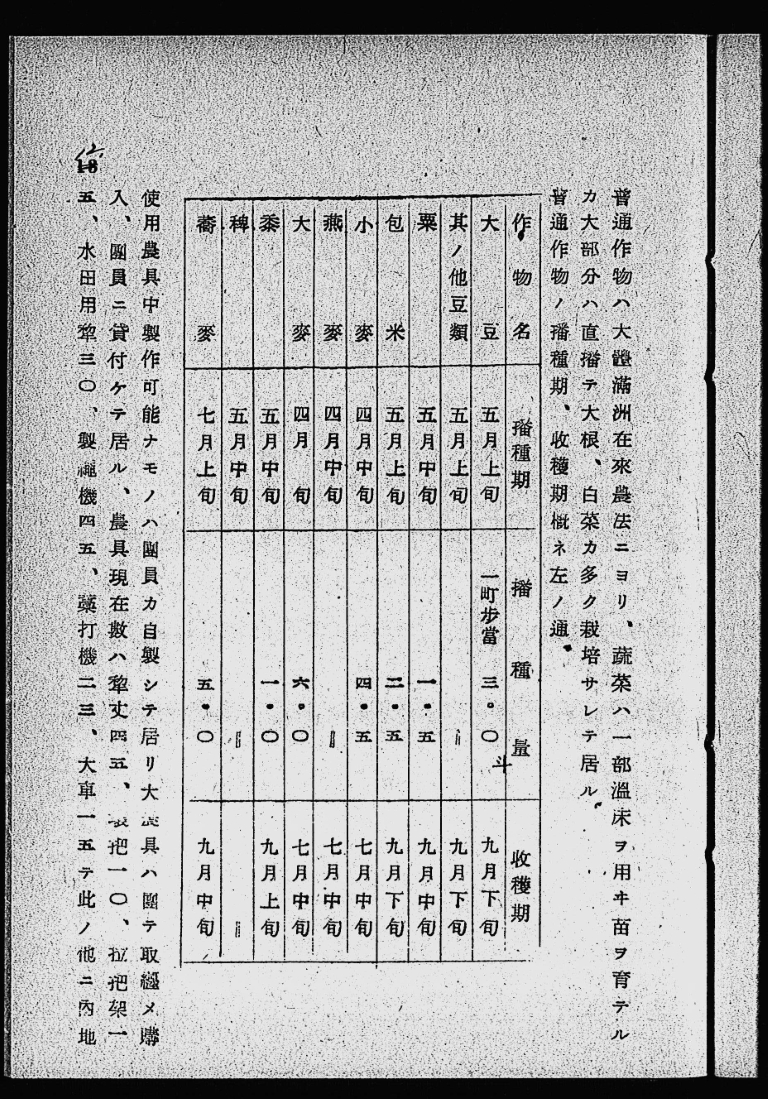 普通作物ハ大體滿洲在來農法ニヨリ、蔬菜ハ一部溫床ヲ用ヰ苗ヲ育テル
カ大部分ハ直播テ大根、白菜カ多ク栽培サレテ居ル。
普通作物ノ播種期、收穫期槪ネ左ノ通。
作物名 播種期 播種量 收穫期
大豆 五月上旬 一町步當 三・〇斗 九月下旬
其ノ他豆類 五月上旬 〃 九月下旬
粟 五月中旬 一・五 九月中旬
包米 五月上旬 二・五 九月下旬
小麥 四月中旬 四・五 七月中旬
燕麥 四月中旬 〃 七月中旬
大麥 四月 旬 六・〇 七月中旬
黍 五月中旬 一・〇 九月上旬
稗 五月中旬 〃 〃
蕎麥 七月上旬 五・〇 九月中旬
使用農具中製作可能ナモノハ團員カ自製シテ居リ大農具ハ團テ取纏メ購
入、團員ニ貸付ケテ居ル、農具現在數ハ犂丈四五、把一〇、拉把架一
五、水田用犂三〇、製繩機四五、藁打機二三、大車一五テ此ノ他ニ內地
18